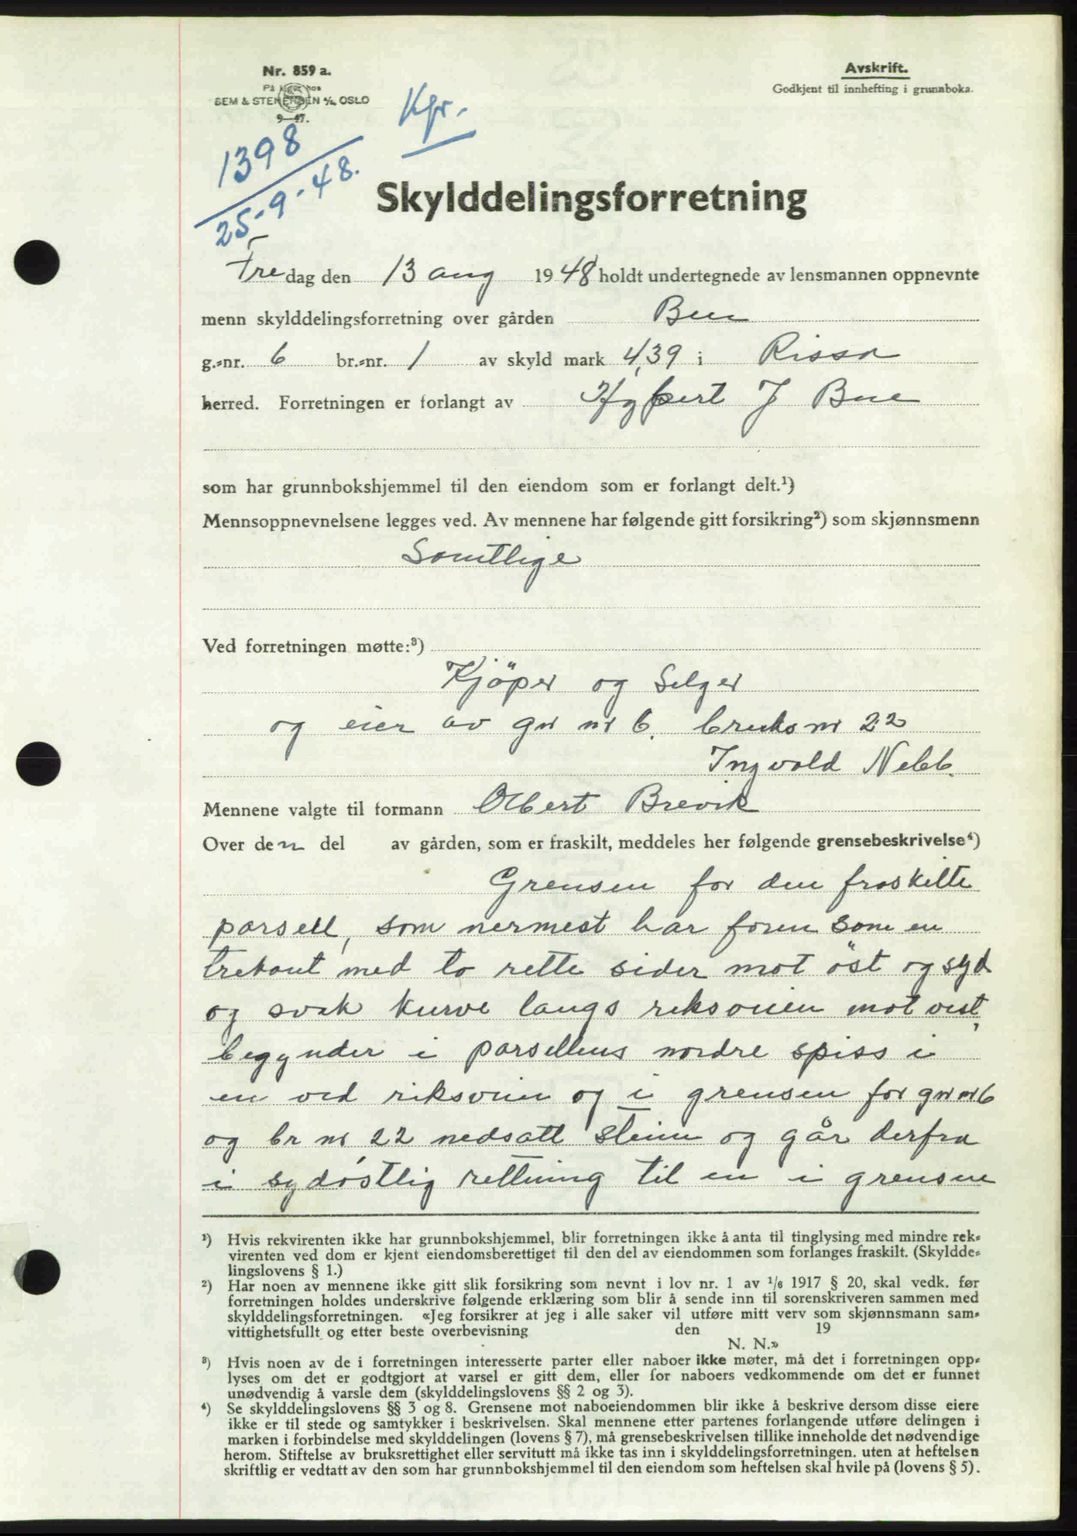 Nr. 859 a.
På lager hos
SEM & STENERSEN A/S, OSLO
9—47.
Avskrift.
Godkjent til innhefting i grunnboka.
Kgr.
1398
25-9-48.
Skylddelingsforretning
Fredag den 13 aug 1948 holdt undertegnede av lensmannen oppnevnte
menn skylddelingsforretning over gården Bue
g.=nr. 6 br.=nr. 1 av skyld mark 4,39 i Rissa
herred. Forretningen er forlangt av Hypert J Bue
som har grunnbokshjemmel til den eiendom som er forlangt delt.¹)
Mennsoppnevnelsene legges ved. Av mennene har følgende gitt forsikring²) som skjønnsmenn
Samtlige
Ved forretningen møtte:³)
Kjöper og Selger
og eier av gnr nr 6. bruks nr 22
Ingvald Nebb.
Mennene valgte til formann Olbert Brevik
Over den del av gården, som er fraskilt, meddeles her følgende grensebeskrivelse⁴)
Grensen for den fraskilte
parsell, som nermest har form som en
trekant med to rette sider mot öst og syd
og svak kurve langs riksveien mot vest,
begynder i parsellens nordre spiss i
en ved riksveien og i grensen for gnr nr 6
og br nr 22 nedsatt stein og går derfra
i sydöstlig rettning til en i grensen
¹) Hvis rekvirenten ikke har grunnbokshjemmel, blir forretningen ikke å anta til tinglysing med mindre rek=
virenten ved dom er kjent eiendomsberettiget til den del av eiendommen som forlanges fraskilt. (Skyldde=
lingslovens § 1.)
²) Har noen av mennene ikke gitt slik forsikring som nevnt i lov nr. 1 av ¹/₆ 1917 § 20, skal vedk. før
forretningen holdes underskrive følgende erklæring som blir å sende inn til sorenskriveren sammen med
skylddelingsforretningen. «Jeg forsikrer at jeg i alle saker vil utføre mitt verv som skjønnsmann sam=
vittighetsfullt og etter beste overbevisning den 19
N. N.»
³) Hvis noen av de i forretningen interesserte parter eller naboer ikke møter, må det i forretningen opp=
lyses om det er godtgjort at varsel er gitt dem, eller for naboers vedkommende om det er funnet
unødvendig å varsle dem (skylddelingslovens §§ 2 og 3).
⁴) Se skylddelingslovens §§ 3 og 8. Grensene mot naboeiendommen blir ikke å beskrive dersom disse eiere
ikke er til stede og samtykker i beskrivelsen. Skal mennene etter partenes forlangende utføre delingen i
marken i forbindelse med skylddelingen (lovens § 7), må grensebeskrivelsen tillike inneholde det nødvendige
herom. Stiftelse av bruksrettighet eller servitutt må ikke tas inn i skylddelingsforretningen. uten at heftelsen
skriftlig er vedtatt av den som har grunnbokshjemmel til den eiendom som heftelsen skal hvile på (lovens § 5).